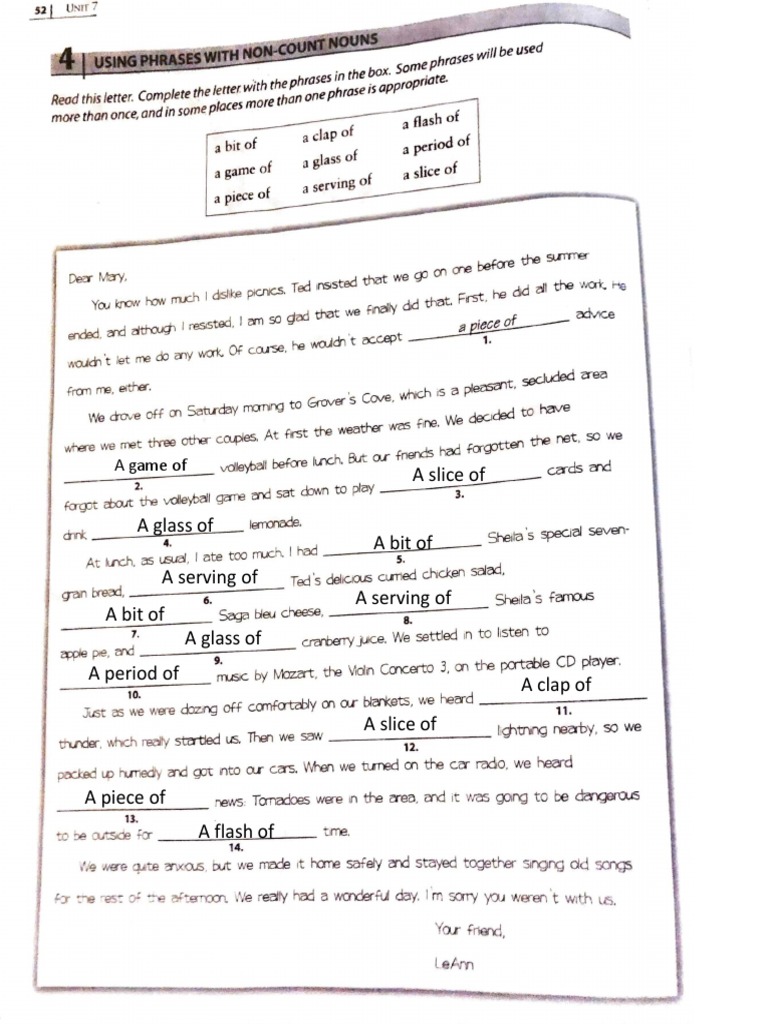 52 | UNIT 7
4 USING PHRASES WITH NON-COUNT NOUNS
Read this letter. Complete the letter with the phrases in the box. Some phrases will be used
more than once, and in some places more than one phrase is appropriate.
a bit of a clap of a flash of
a game of a glass of a period of
a piece of a serving of a slice of
Dear Mary,
You know how much I dislike picnics. Ted insisted that we go on one before the summer
ended, and although I resisted, I am so glad that we finally did that. First, he did all the work. He
wouldn't let me do any work. Of course, he wouldn't accept a piece of advice
1.
from me, either.
We drove off on Saturday morning to Grover's Cove, which is a pleasant, secluded area
where we met three other couples. At first the weather was fine. We decided to have
A game of volleyball before lunch. But our friends had forgotten the net, so we
2.
forgot about the volleyball game and sat down to play A slice of cards and
3.
drink A glass of lemonade.
4.
At lunch, as usual, I ate too much. I had A bit of Sheila's special seven-
5.
grain bread, A serving of Ted's delicious curried chicken salad,
6.
A bit of Saga bleu cheese, A serving of Sheila's famous
7. 8.
apple pie, and A glass of cranberry juice. We settled in to listen to
9.
A period of music by Mozart, the Violin Concerto 3, on the portable CD player.
10.
Just as we were dozing off comfortably on our blankets, we heard A clap of
11.
thunder, which really startled us. Then we saw A slice of lightning nearby, so we
12.
packed up hurriedly and got into our cars. When we turned on the car radio, we heard
A piece of news: Tornadoes were in the area, and it was going to be dangerous
13.
to be outside for A flash of time.
14.
We were quite anxious, but we made it home safely and stayed together singing old songs
for the rest of the afternoon. We really had a wonderful day. I'm sorry you weren't with us.
Your friend,
LeAnn